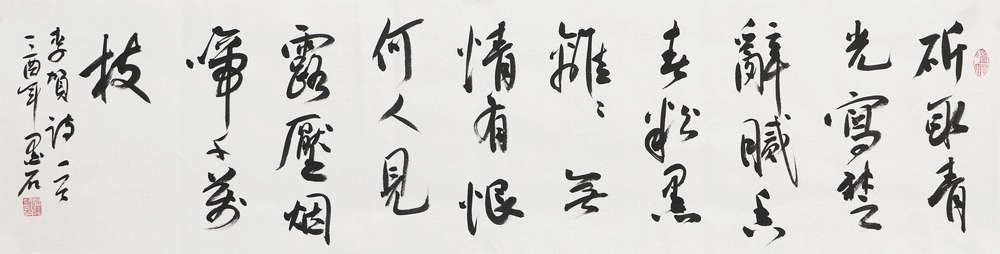 斫取青
光寫楚
辭膩香
春粉黑
離〻無
情有恨
何人見
露壓烟
啼千萬
枝
李賀詩一首
丁酉年墨石